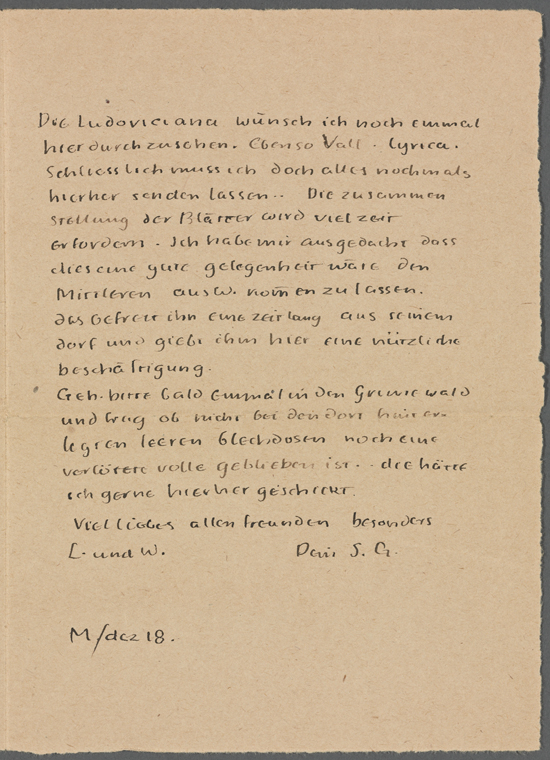 Die Ludoviciana wünsch ich noch einmal
hier durchzusehen. Ebenso Vall. Lyrica.
Schliesslich muss ich doch alles nochmals
hierher senden lassen.. Die zusammen
stellung der Blätter wird viel zeit
erfordern. Ich habe mir ausgedacht dass
dies eine gute gelegenheit wäre den
Mittleren aus W. kom̄en zu lassen.
das befreit ihn eine zeitlang aus seinem
dorf und giebt ihm hier eine nützliche
beschäftigung.
Geh bitte bald einmal in den Grunewald
und frag ob nicht bei den dort hinter-
legten leeren blechdosen noch eine
verlötete volle geblieben ist.. die hätte
ich gerne hierher geschickt.
Viel liebes allen freunden besonders
E. und W. Dein S. G.
M/dez 18.